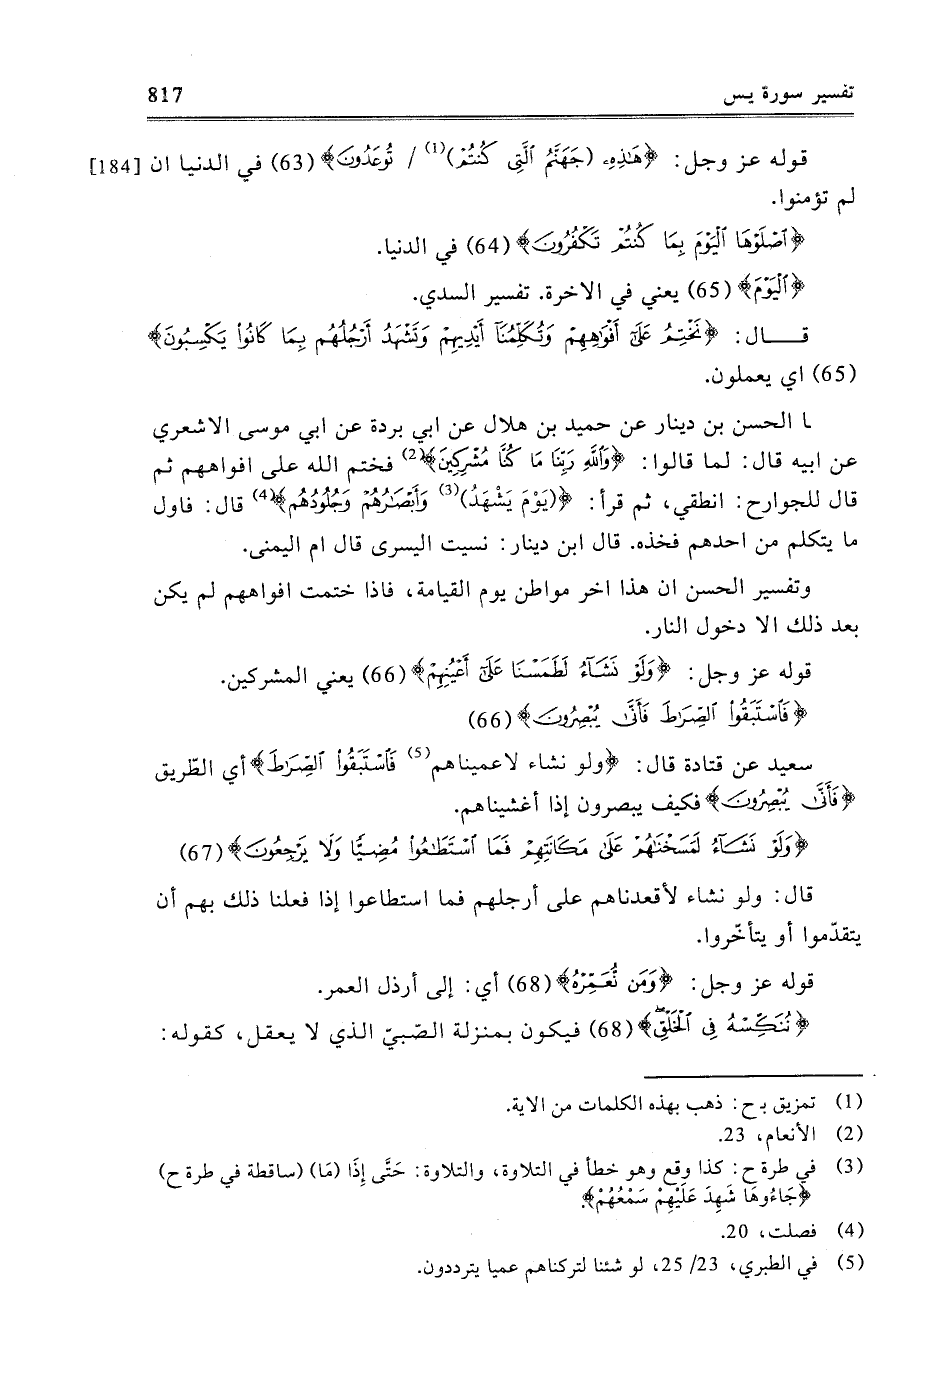 تفسير سورة يس 817
قوله عز وجل: ﴿هَٰذِهِۦ (جَهَنَّمُ ٱلَّتِى كُنتُمْ)(1) / تُوعَدُونَ﴾ (63) في الدنيا ان [184]
لم تؤمنوا.
﴿ٱصْلَوْهَا ٱلْيَوْمَ بِمَا كُنتُمْ تَكْفُرُونَ﴾ (64) في الدنيا.
﴿ٱلْيَوْمَ﴾ (65) يعني في الاخرة. تفسير السدي.
قــــال: ﴿نَخْتِمُ عَلَىٰٓ أَفْوَٰهِهِمْ وَتُكَلِّمُنَآ أَيْدِيهِمْ وَتَشْهَدُ أَرْجُلُهُم بِمَا كَانُوا۟ يَكْسِبُونَ﴾
(65) اي يعملون.
ا الحسن بن دينار عن حميد بن هلال عن ابي بردة عن ابي موسى الاشعري
عن ابيه قال: لما قالوا: ﴿وَٱللَّهِ رَبِّنَا مَا كُنَّا مُشْرِكِينَ﴾(2) فختم الله على افواههم ثم
قال للجوارح: انطقي، ثم قرأ: ﴿(يَوْمَ يَشْهَدُ)(3) وَأَبْصَٰرُهُمْ وَجُلُودُهُم﴾(4) قال: فاول
ما يتكلم من احدهم فخذه. قال ابن دينار: نسيت اليسرى قال ام اليمنى.
وتفسير الحسن ان هذا اخر مواطن يوم القيامة، فاذا ختمت افواههم لم يكن
بعد ذلك الا دخول النار.
قوله عز وجل: ﴿وَلَوْ نَشَآءُ لَطَمَسْنَا عَلَىٰٓ أَعْيُنِهِمْ﴾ (66) يعني المشركين.
﴿فَٱسْتَبَقُوا۟ ٱلصِّرَٰطَ فَأَنَّىٰ يُبْصِرُونَ﴾ (66)
سعيد عن قتادة قال: ﴿ولو نشاء لاعميناهم(5) فَٱسْتَبَقُوا۟ ٱلصِّرَٰطَ﴾ أي الطّريق
﴿فَأَنَّىٰ يُبْصِرُونَ﴾ فكيف يبصرون إذا أغشيناهم.
﴿وَلَوْ نَشَآءُ لَمَسَخْنَٰهُمْ عَلَىٰ مَكَانَتِهِمْ فَمَا ٱسْتَطَٰعُوا۟ مُضِيًّا وَلَا يَرْجِعُونَ﴾ (67)
قال: ولو نشاء لأقعدناهم على أرجلهم فما استطاعوا إذا فعلنا ذلك بهم أن
يتقدّموا أو يتأخّروا.
قوله عز وجل: ﴿وَمَن نُّعَمِّرْهُ﴾ (68) أي: إلى أرذل العمر.
﴿نُنَكِّسْهُ فِى ٱلْخَلْقِ﴾ (68) فيكون بمنزلة الصّبيّ الذي لا يعقل، كقوله:
(1) تمزيق بـ ح: ذهب بهذه الكلمات من الاية.
(2) الأنعام، 23.
(3) في طرة ح: كذا وقع وهو خطأ في التلاوة، والتلاوة: حَتَّى إِذَا (مَا) (ساقطة في طرة ح)
﴿جَاءُوهَا شَهِدَ عَلَيْهِمْ سَمْعُهُمْ﴾.
(4) فصلت، 20.
(5) في الطبري، 23/ 25، لو شئنا لتركناهم عميا يترددون.